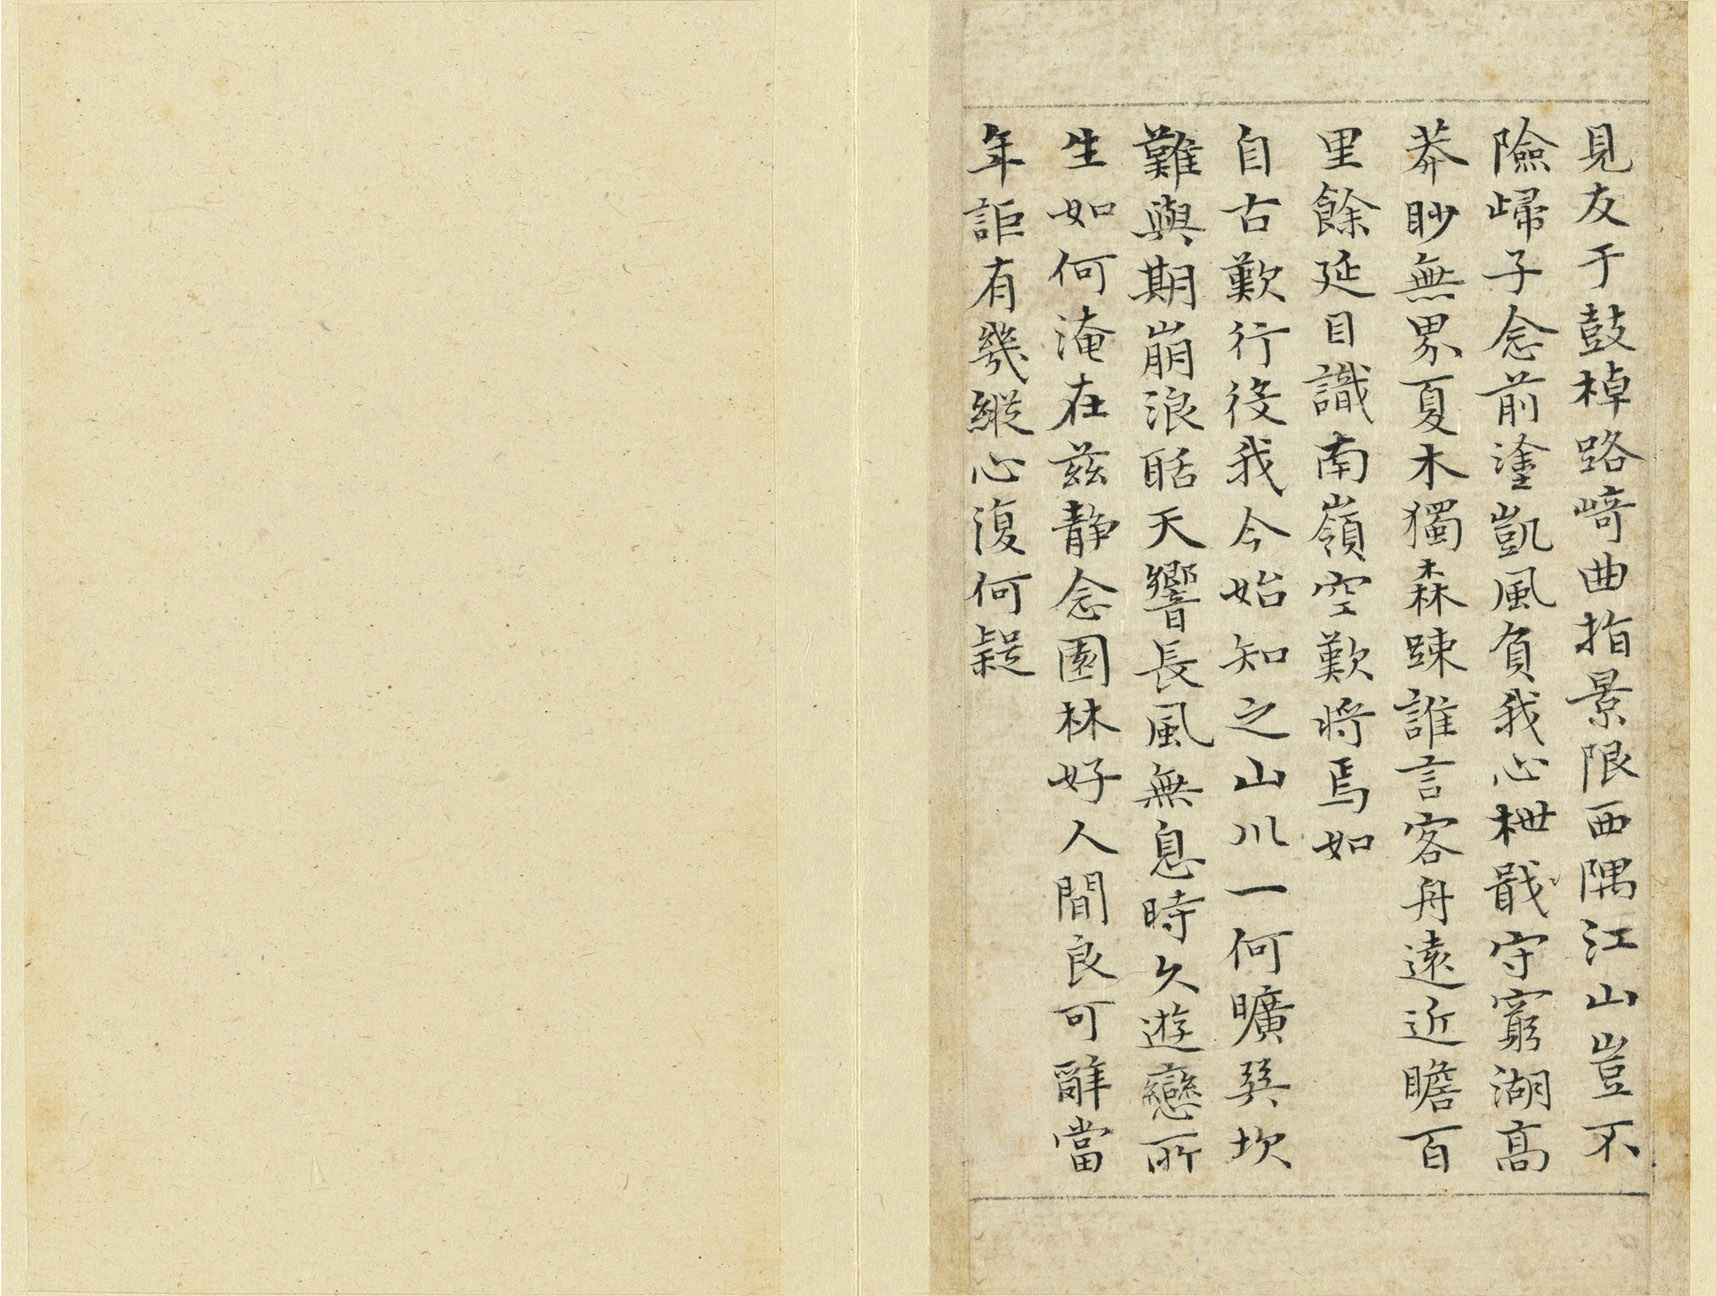 見友于鼓棹路崎曲指景限西隅江山豈不
險歸子念前塗凱風負我心枻戢守窮湖高
莽眇無界夏木獨森踈誰言客舟遠近瞻百
里餘延目識南嶺空歎將焉如
自古歎行役我今始知之山川一何曠巽坎
難與期崩浪聒天響長風無息時久遊戀所
生如何淹在兹静念園林好人間良可辭當
年詎有幾縱心復何疑